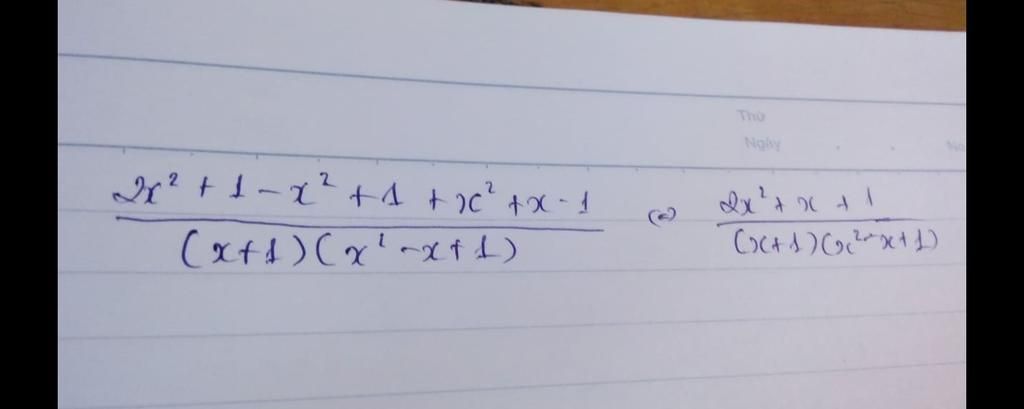 Thứ
Ngày No
2x² + 1 - x² + 1 + x² + x - 1 (=) 2x² + x + 1
(x+1)(x² - x + 1) (x+1)(x² - x + 1)